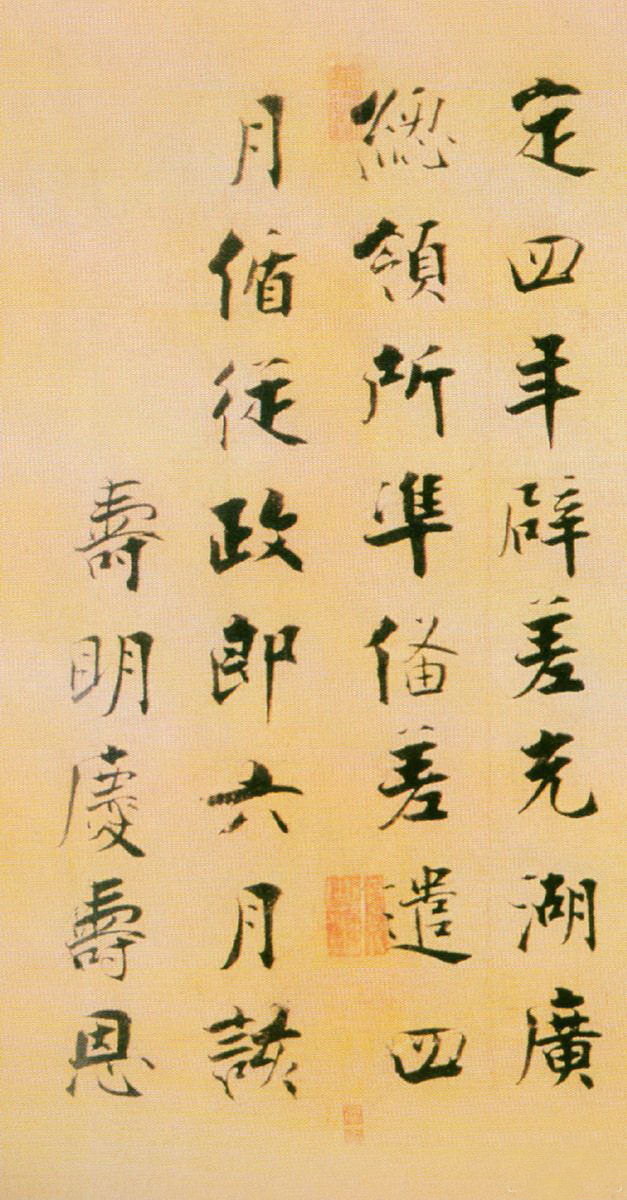 定四年辟差充湖廣
總領所準俻差遣四
月循從政郎六月該
壽明慶壽恩